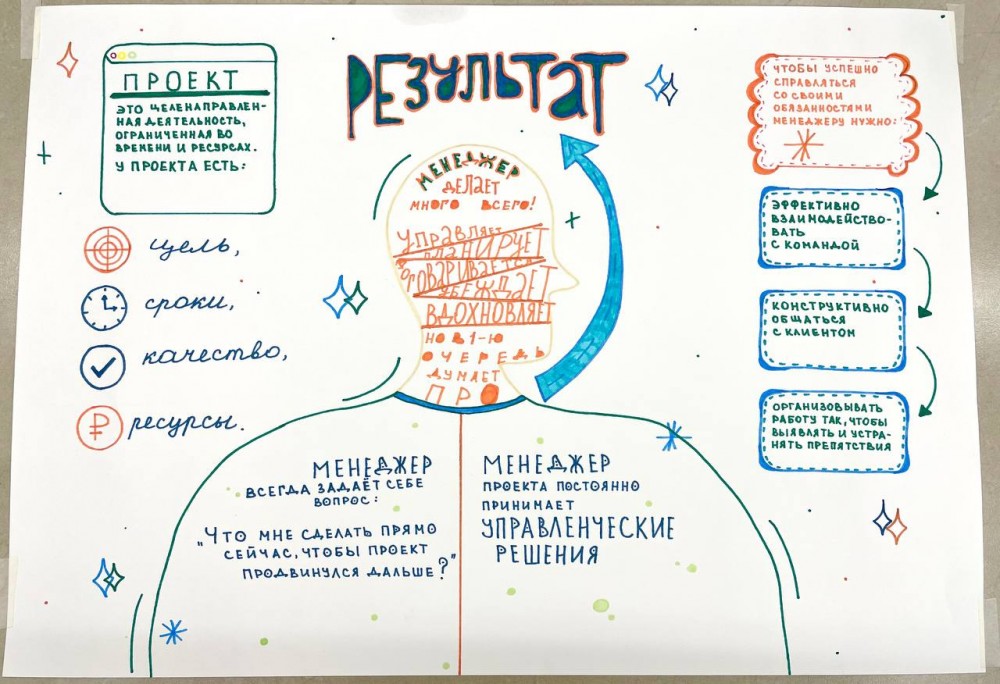 ПРОЕКТ
ЭТО ЦЕЛЕНАПРАВЛЕН-
НАЯ ДЕЯТЕЛЬНОСТЬ,
ОГРАНИЧЕННАЯ ВО
ВРЕМЕНИ И РЕСУРСАХ.
У ПРОЕКТА ЕСТЬ:
цель,
сроки,
качество,
₽
ресурсы.
РЕЗУЛЬТАТ
МЕНЕДЖЕР
ДЕЛАЕТ
МНОГО ВСЕГО!
УПРАВЛЯЕТ
ПЛАНИРУЕТ
ДОГОВАРИВАЕТСЯ
УБЕЖДАЕТ
ВДОХНОВЛЯЕТ
НО В 1-Ю
ОЧЕРЕДЬ
ДУМАЕТ
ПРО
МЕНЕДЖЕР
ВСЕГДА ЗАДАЁТ СЕБЕ
ВОПРОС:
"ЧТО МНЕ СДЕЛАТЬ ПРЯМО
СЕЙЧАС, ЧТОБЫ ПРОЕКТ
ПРОДВИНУЛСЯ ДАЛЬШЕ?"
МЕНЕДЖЕР
ПРОЕКТА ПОСТОЯННО
ПРИНИМАЕТ
УПРАВЛЕНЧЕСКИЕ
РЕШЕНИЯ
ЧТОБЫ УСПЕШНО
СПРАВЛЯТЬСЯ
СО СВОИМИ
ОБЯЗАННОСТЯМИ
МЕНЕДЖЕРУ НУЖНО:
ЭФФЕКТИВНО
ВЗАИМОДЕЙСТВО-
ВАТЬ
С КОМАНДОЙ
КОНСТРУКТИВНО
ОБЩАТЬСЯ
С КЛИЕНТОМ
ОРГАНИЗОВЫВАТЬ
РАБОТУ ТАК, ЧТОБЫ
ВЫЯВЛЯТЬ И УСТРА-
НЯТЬ ПРЕПЯТСТВИЯ